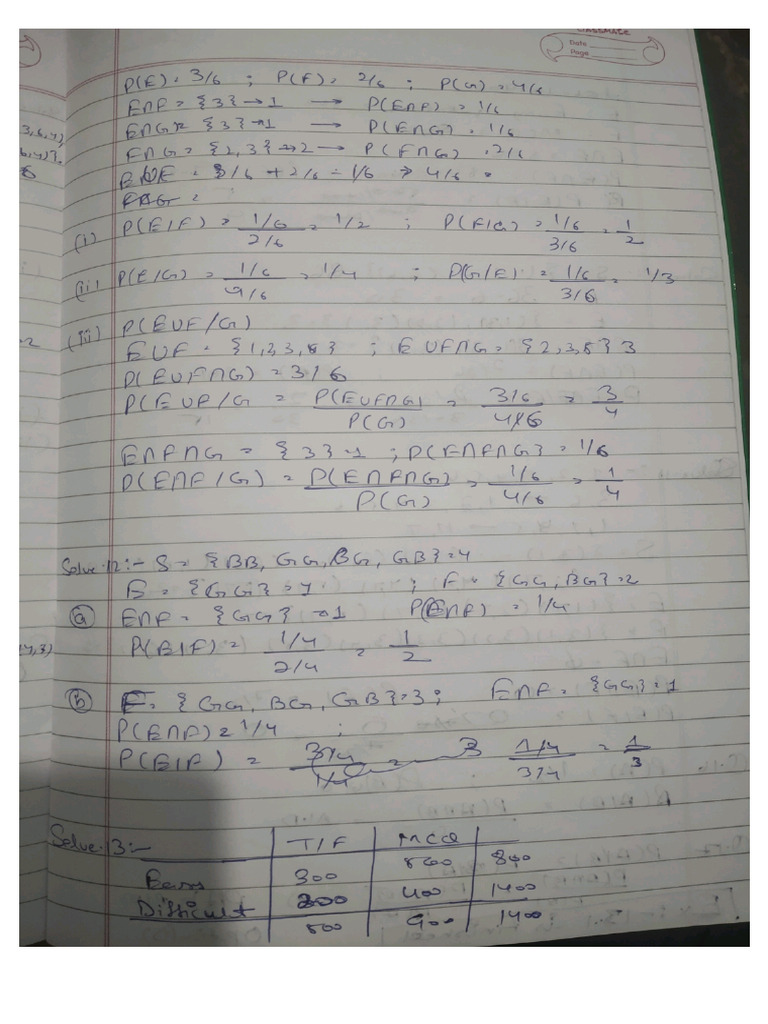 CLASSMATE
Date
Page
P(E) = 3/6 ; P(F) = 2/6 ; P(G) = 4/6
E∩F = {3} → 1 → P(E∩F) = 1/6
E∩G = {3} → 1 → P(E∩G) = 1/6
F∩G = {2,3} → 2 → P(F∩G) = 2/6
E∪F = 3/6 + 2/6 - 1/6 ⇒ 4/6
(i) P(E/F) = 1/6 / 2/6 = 1/2 ; P(F/G) = 1/6 / 3/6 = 1/2
(ii) P(E/G) = 1/6 / 4/6 = 1/4 ; P(G/E) = 1/6 / 3/6 = 1/3
(iii) P(EUF/G)
EUF = {1,2,3,5} ; EUF∩G = {2,3,5} 3
P(EUF∩G) = 3/6
P(EUF/G = P(EUF∩G) / P(G) = 3/6 / 4/6 = 3/4
E∩F∩G = {3} → 1 ; P(E∩F∩G} = 1/6
P(E∩F/G) = P(E∩F∩G) / P(G) = 1/6 / 4/6 = 1/4
Solve.12:- S = {BB, GG, BG, GB} = 4
E = {GG} = 1 ; F = {GG, BG} = 2
(a) E∩F = {GG} → 1 P(E∩F) = 1/4
P(E/F) = 1/4 / 2/4 = 1/2
(b) F = {GG, BG, GB} = 3 ; E∩F = {GG} = 1
P(E∩F) = 1/4 ;
P(E/F) = 1/4 / 3/4 = 1/3
Solve.13:- T/F MCQ
Easy 300 500 800
Difficult 200 400 1400
500 900 1400